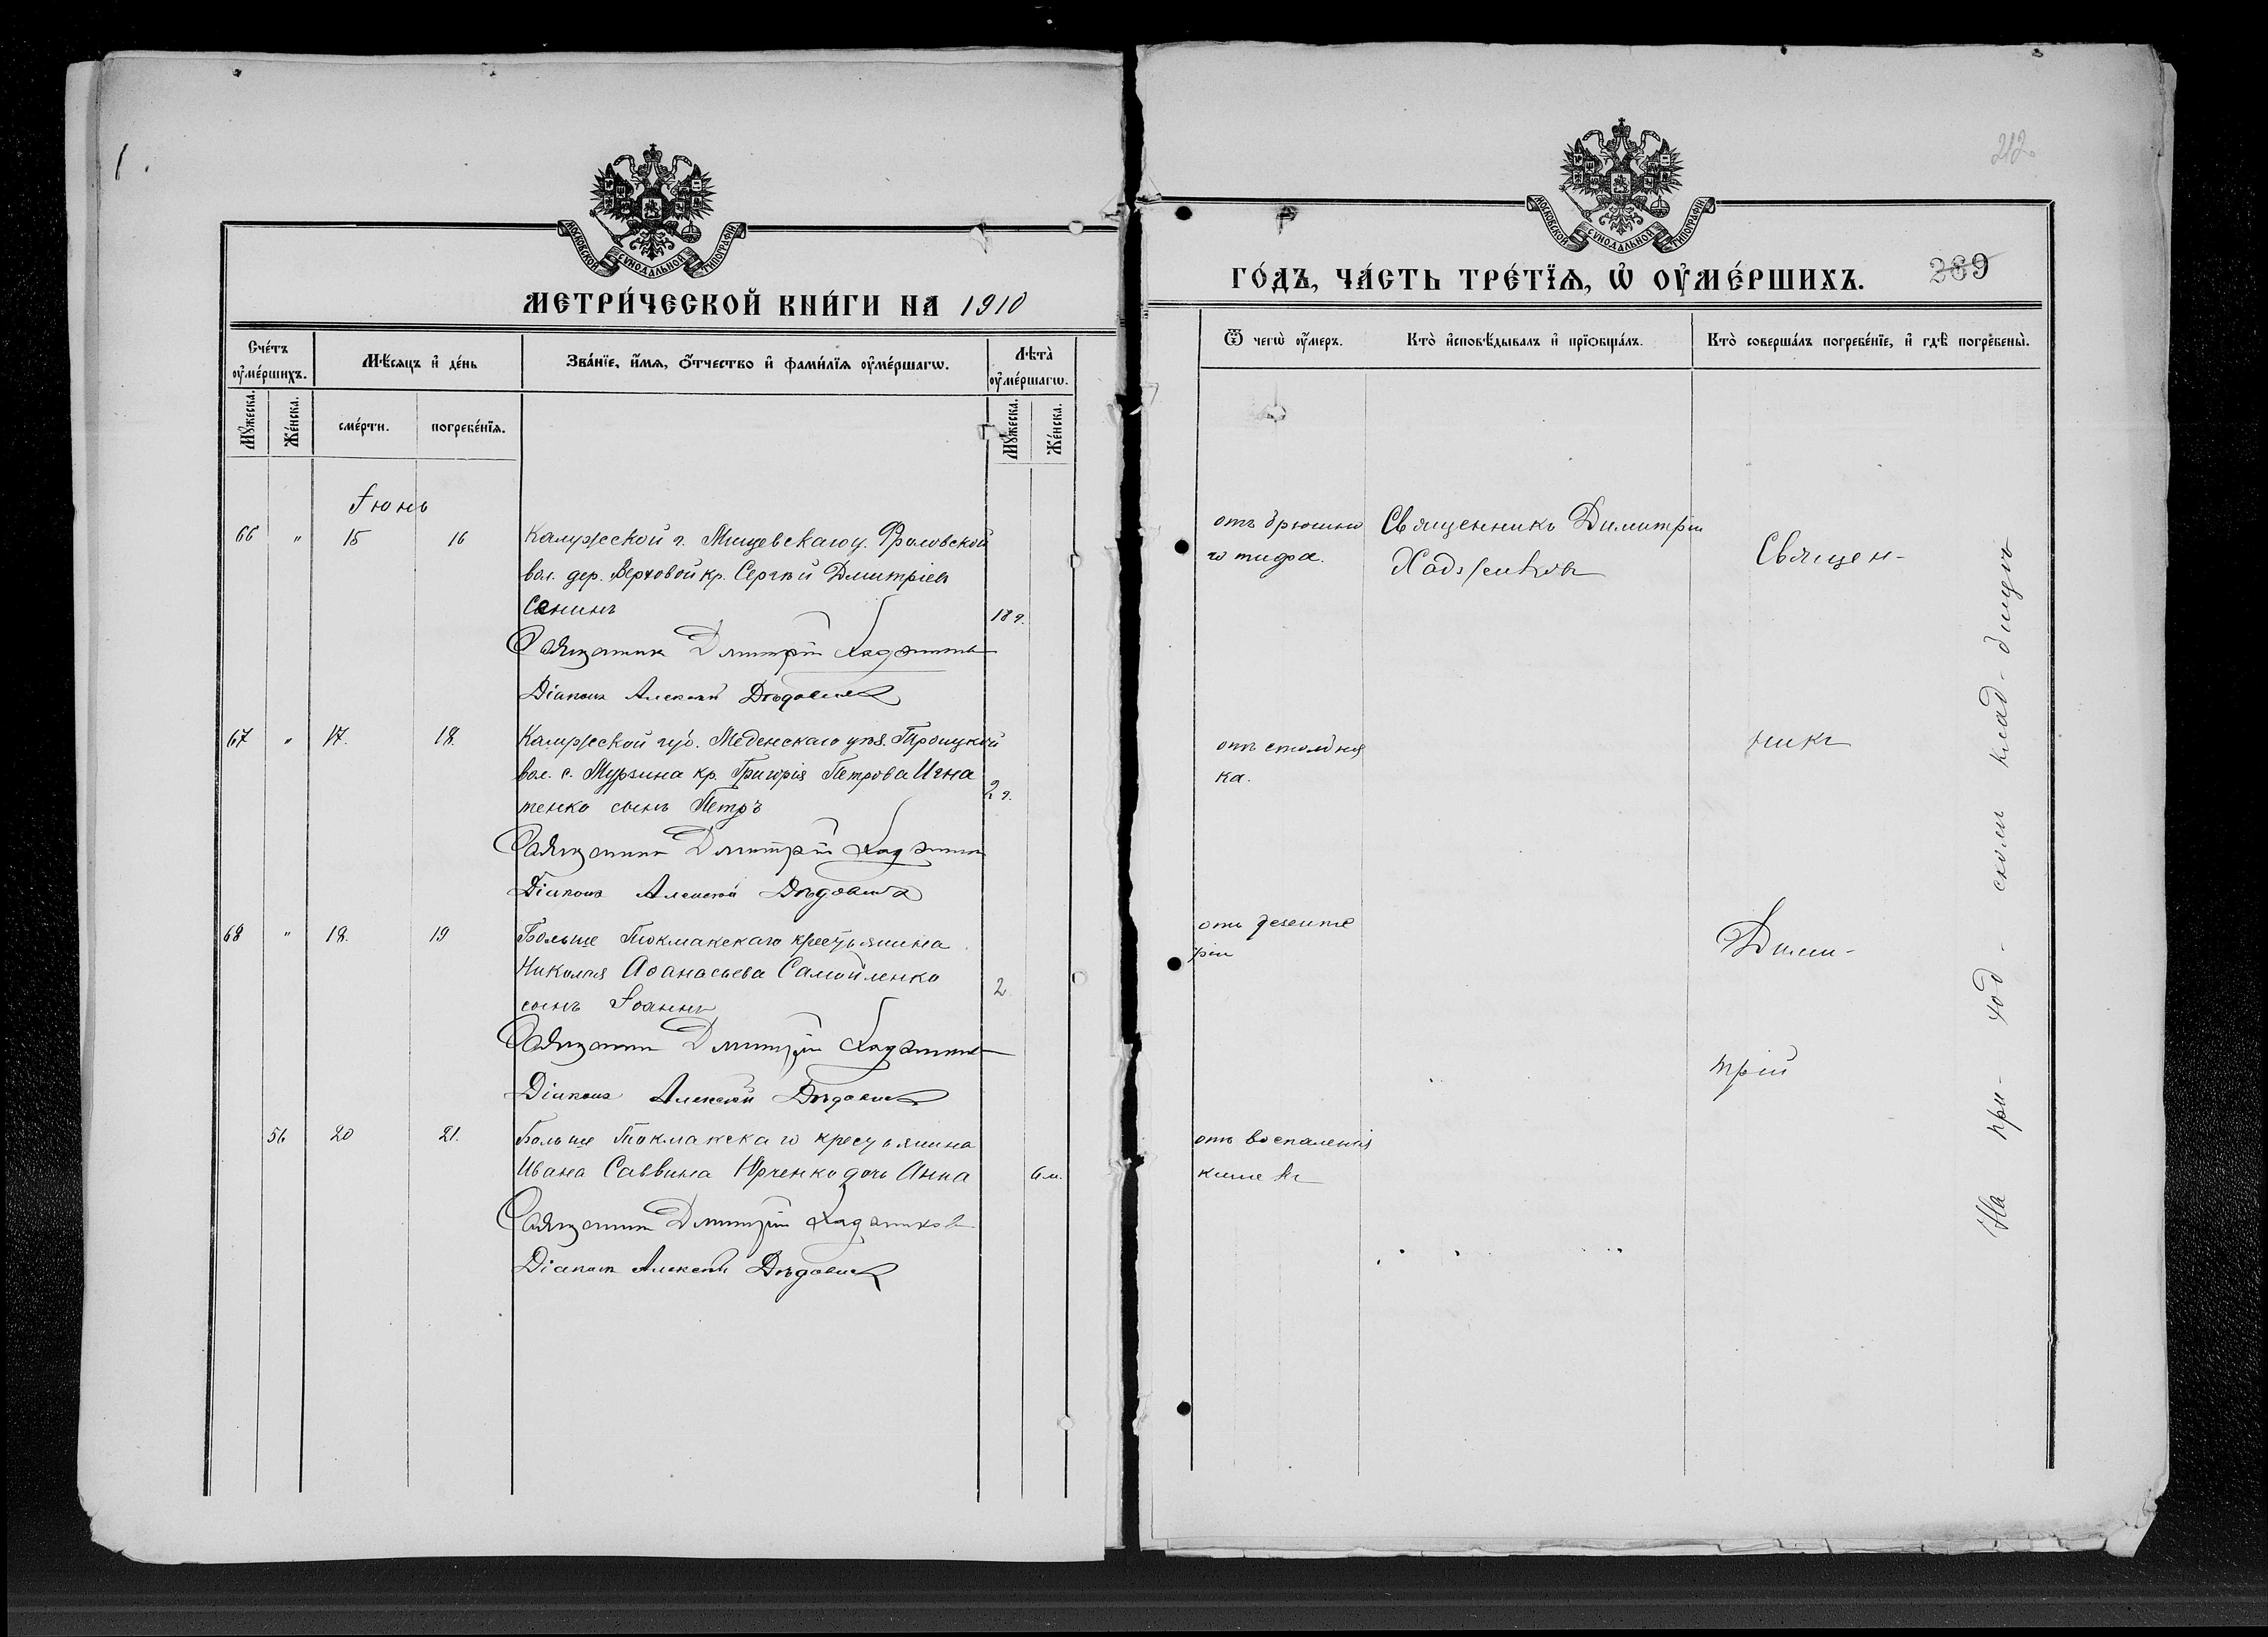 МОСКОВСКОЙ СѴНОДАЛЬНОЙ ТИПОГРАФІИ
МЕТРИ́ЧЕСКОЙ КНИ́ГИ НА 1910
Сче́тъ ᲂу҆ме́ршихъ.
Мѣ́сяцъ и҆ де́нь
Зва́нїе, и҆́мѧ, ѻ҆́тчество и҆ фамилїѧ ᲂу҆ме́ршагѡ.
Лѣта̀ ᲂу҆ме́ршагѡ.
Мꙋ́жеска.
Же́нска.
сме́рти.
погребе́нїѧ.
Мꙋ́жеска.
Же́нска.
Іюнь
66 " 15 16 Калужской г. Мищевскаго у. Фроловской
вол. дер. Верховой кр. Сергѣй Дмитріев
Сенинъ 18 г.
Священник Дмитрій Хаджиков
Діаконъ Алексѣй
67 " 17. 18. Калужской губ. Меденскаго уѣз. Троицкой
вол. с. Мурзина кр. Григорія Петрова Игна
тенко сынъ Петръ 2 г.
Священник Дмитрій Хаджиков
Діаконъ Алексѣй
68 " 18. 19 Больше Токмакскаго крестьянина
Николая Аѳанасьева Самойленко
сынъ Іоаннъ 2
Священник Дмитрій Хаджиков
Діаконъ Алексѣй
56 20 21. Больше Токмакскаго крестьянина
Ивана Саввина Юрченко дочь Анна 6 м.
Священник Дмитрій Хаджиков
Діаконъ Алексѣй
212
МОСКОВСКОЙ СѴНОДАЛЬНОЙ ТИПОГРАФІИ
ГО́ДЪ, ЧА́СТЬ ТРЕ́ТЇѦ, Ѡ҆ ОУ҆МЕ́РШИХЪ.
269
Ѿ чегѡ̀ ᲂу҆́меръ.
Кто̀ и҆сповѣ́дывалъ и҆ прїѻбща́лъ.
Кто̀ соверша́лъ погребе́нїе, и҆ гдѣ̀ погребены̀.
отъ брюшно
го тифа.
Священникъ Димитрій
Хаджиковъ
Священ-
отъ столбня
ка.
никъ
отъ дезенте
ріи
Дими-
трій
отъ воспаленія
кишекъ
На при- ход- скомъ клад- бищѣ